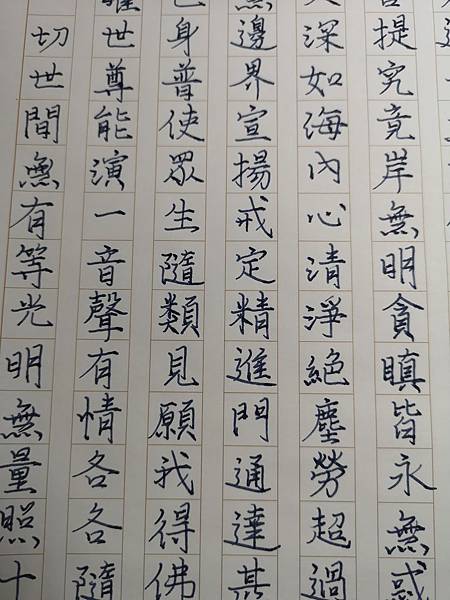 提究竟岸無明貪瞋皆永無惑
深如海內心清淨絕塵勞超過
邊界宣揚戒定精進門通達甚
身普使眾生隨類見願我得佛
世尊能演一音聲有情各各隨
切世間無有等光明無量照十